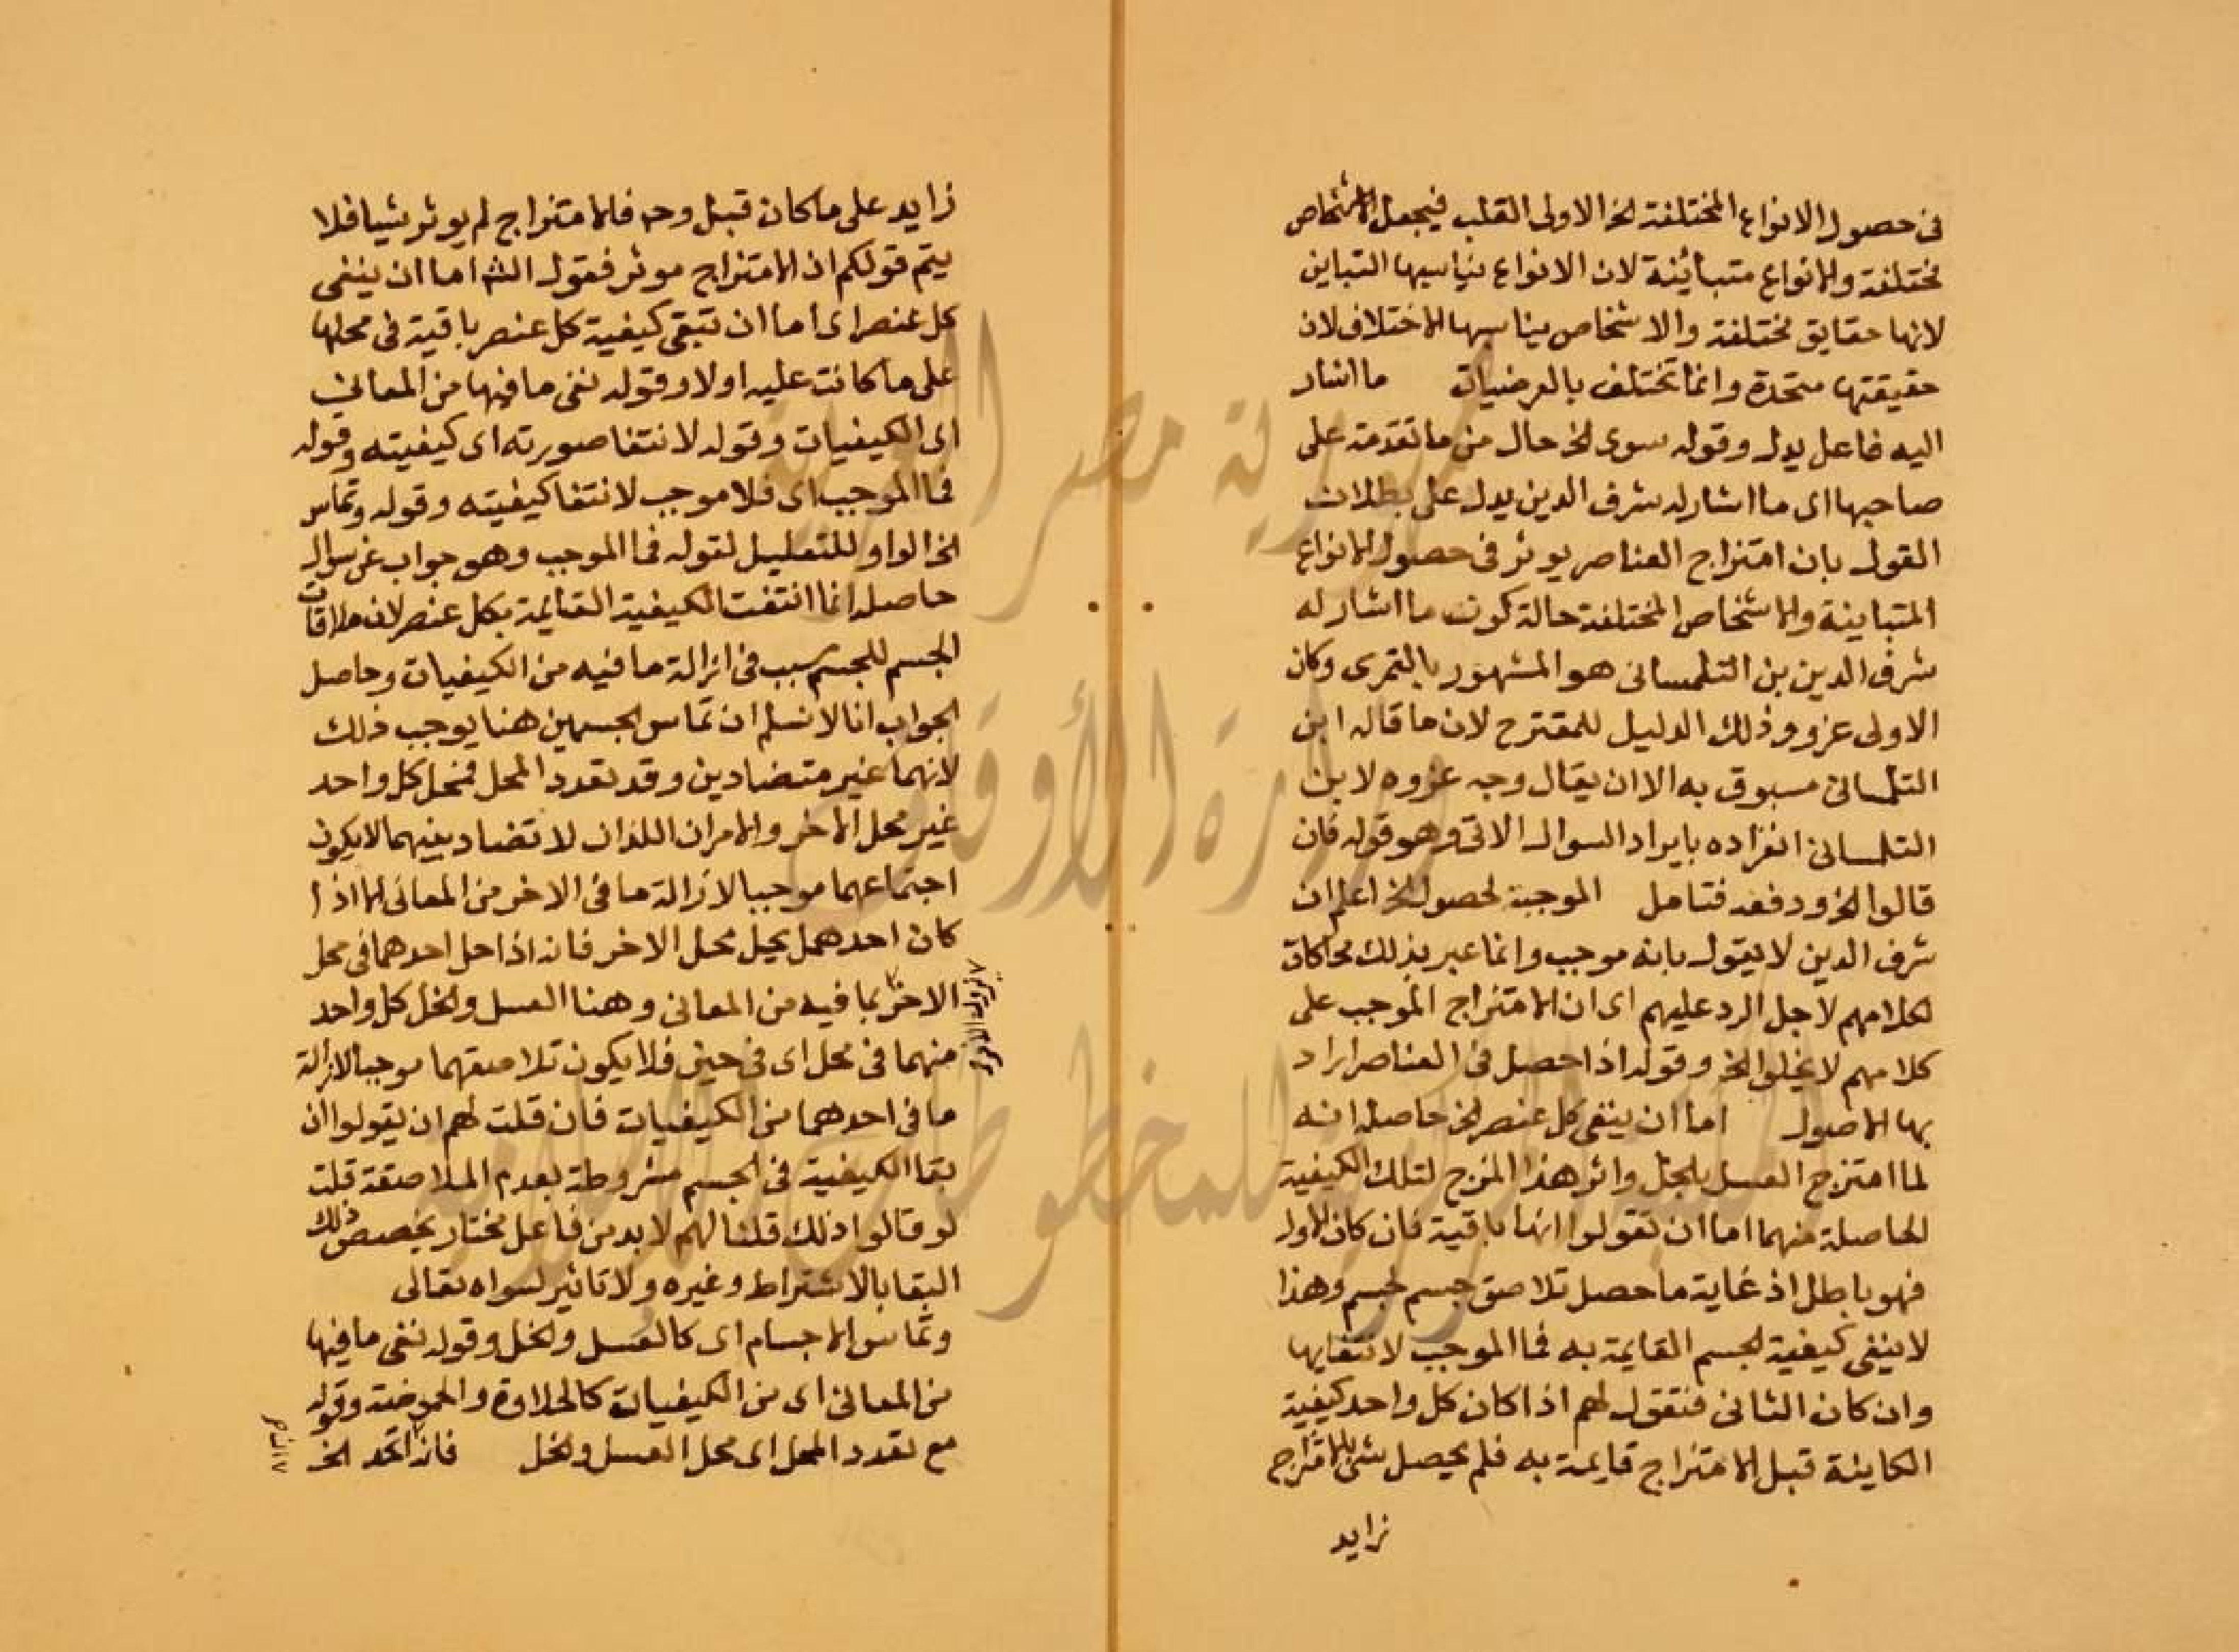 فى حصول الانواع المختلفة الخ الاولى القلب فيجعل الاشخاص
مختلفة والانواع متباينة لان الانواع يناسبها التباين
لانها حقايق مختلفة والاشخاص يناسبها الاختلاف لان
حقيقتها متحدة وانما تختلف بالعرضيات ما اشار
اليه فاعل يدل وقوله سوى الخ حال من ما تقدمت على
صاحبها اى ما اشار له شرف الدين يدل على بطلان
القول بان امتزاج العناصر يوثر فى حصول الانواع
المتباينة والاشخاص المختلفة حالة كون ما اشار له
شرف الدين بن التلمسانى هو المشهور بالتمرى وكان
الاولى عزو وذلك الدليل للمقترح لان ما قاله ابن
التلمسانى مسبوق به الا ان يقال وجه عزوه لابن
التلمسانى انفراده بايراد السوال الاتى وهو قوله فان
قالوا الخ ودفعه فتامل الموجبة لحصول الخ اعلم ان
شرف الدين لا يقول بانه موجب وانما عبر بذلك محاكاة
لكلامهم لاجل الرد عليهم اى ان الامتزاج الموجب على
كلامهم لا يخلوا الخ وقوله اذا حصل فى العناصر اراد
بها الاصول اما ان ينفى كل عنصر الخ حاصله انه
لما امتزج العسل بالخل واثر هذا المزج لتلك الكيفية
الحاصلة منهما اما ان تقولوا انها باقية فان كان الاول
فهو باطل اذ غاية ما حصل تلاصق جسم لجسم وهذا
لا ينفى كيفية الجسم القايمة به فما الموجب لانتفايها
وان كان الثانى فنقول لهم اذا كان كل واحد كيفية
الكاينة قبل الامتزاج قايمة به فلم يحصل شى بالامتزاج
زايد
زايد على ما كان قبل وح فالامتزاج لم يوثر شيا فلا
يتم قولكم ان الامتزاج موثر فقول الش اما ان ينفى
كل عنصر اى اما ان تبقى كيفية كل عنصر باقية فى محلها
على ما كانت عليه اولا وقوله نفى ما فيها من المعانى
اى الكيفيات وقوله لانتفا صورته اى كيفيته وقوله
فما الموجب اى فلا موجب لانتفا كيفيته وقوله وتماس
الخ الواو للتعليل لقوله فما الموجب وهو جواب عن سوال
حاصله انما انتفت الكيفية القايمة بكل عنصر لان ملاقات
الجسم للجسم سبب فى ازالة ما فيه من الكيفيات وحاصل
الجواب انا لا نسلم ان تماس الجسمين هنا يوجب ذلك
لانهما غير متضادين وقد تعدد المحل فمحل كل واحد
غير محل الاخر والامران اللذان لا تضاد بينهما لا يكون
اجتماعهما موجبا لازالة ما فى الاخر من المعانى الا اذا
كان احدهما يحل محل الاخر فانه اذا حل احدهما فى محل
الاخر بما فيه من المعانى وهنا العسل والخل كل واحد
منهما فى محل اى فى حيز فلا يكون تلاصقهما موجبا لازالة
ما فى احدهما من الكيفيات فان قلت لهم ان يقولوا ان
بقا الكيفية فى الجسم مشروطة بعدم الملاصقة قلت
لو قالوا ذلك قلنا لهم لابد من فاعل مختار يخصص ذلك
البقا بالاشتراط وغيره ولا تاثير لسواه تعالى
وتماس الاجسام اى كالعسل والخل وقوله نفى ما فيها
من المعانى اى من الكيفيات كالحلاوة والحموضة وقوله
مع تعدد المحل اى محل العسل والخل فان اتحد الخ